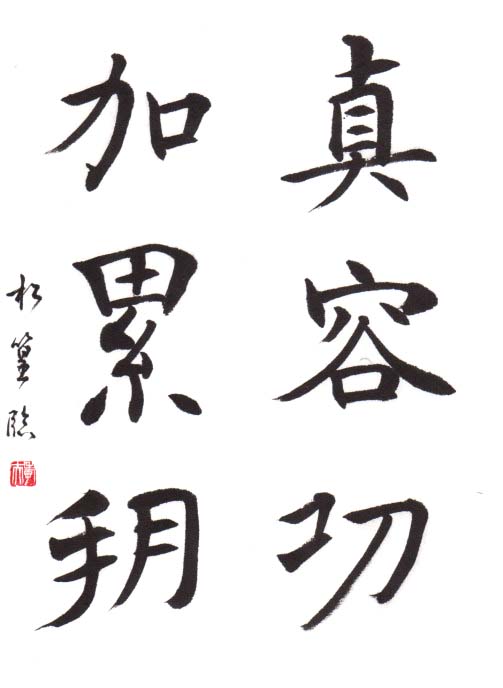 真容功
加累朔
松篁臨